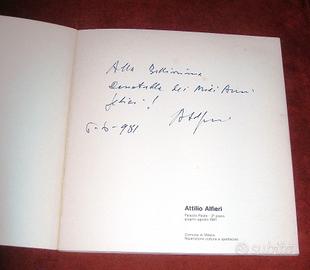 Alla Bellissima
Donatella dei Miei Anni
felici!
6-6-981
Attilio Alfieri
Palazzo Reale - 2° piano
Comune di Milano
Ripartizione cultura e spettacolo
subito